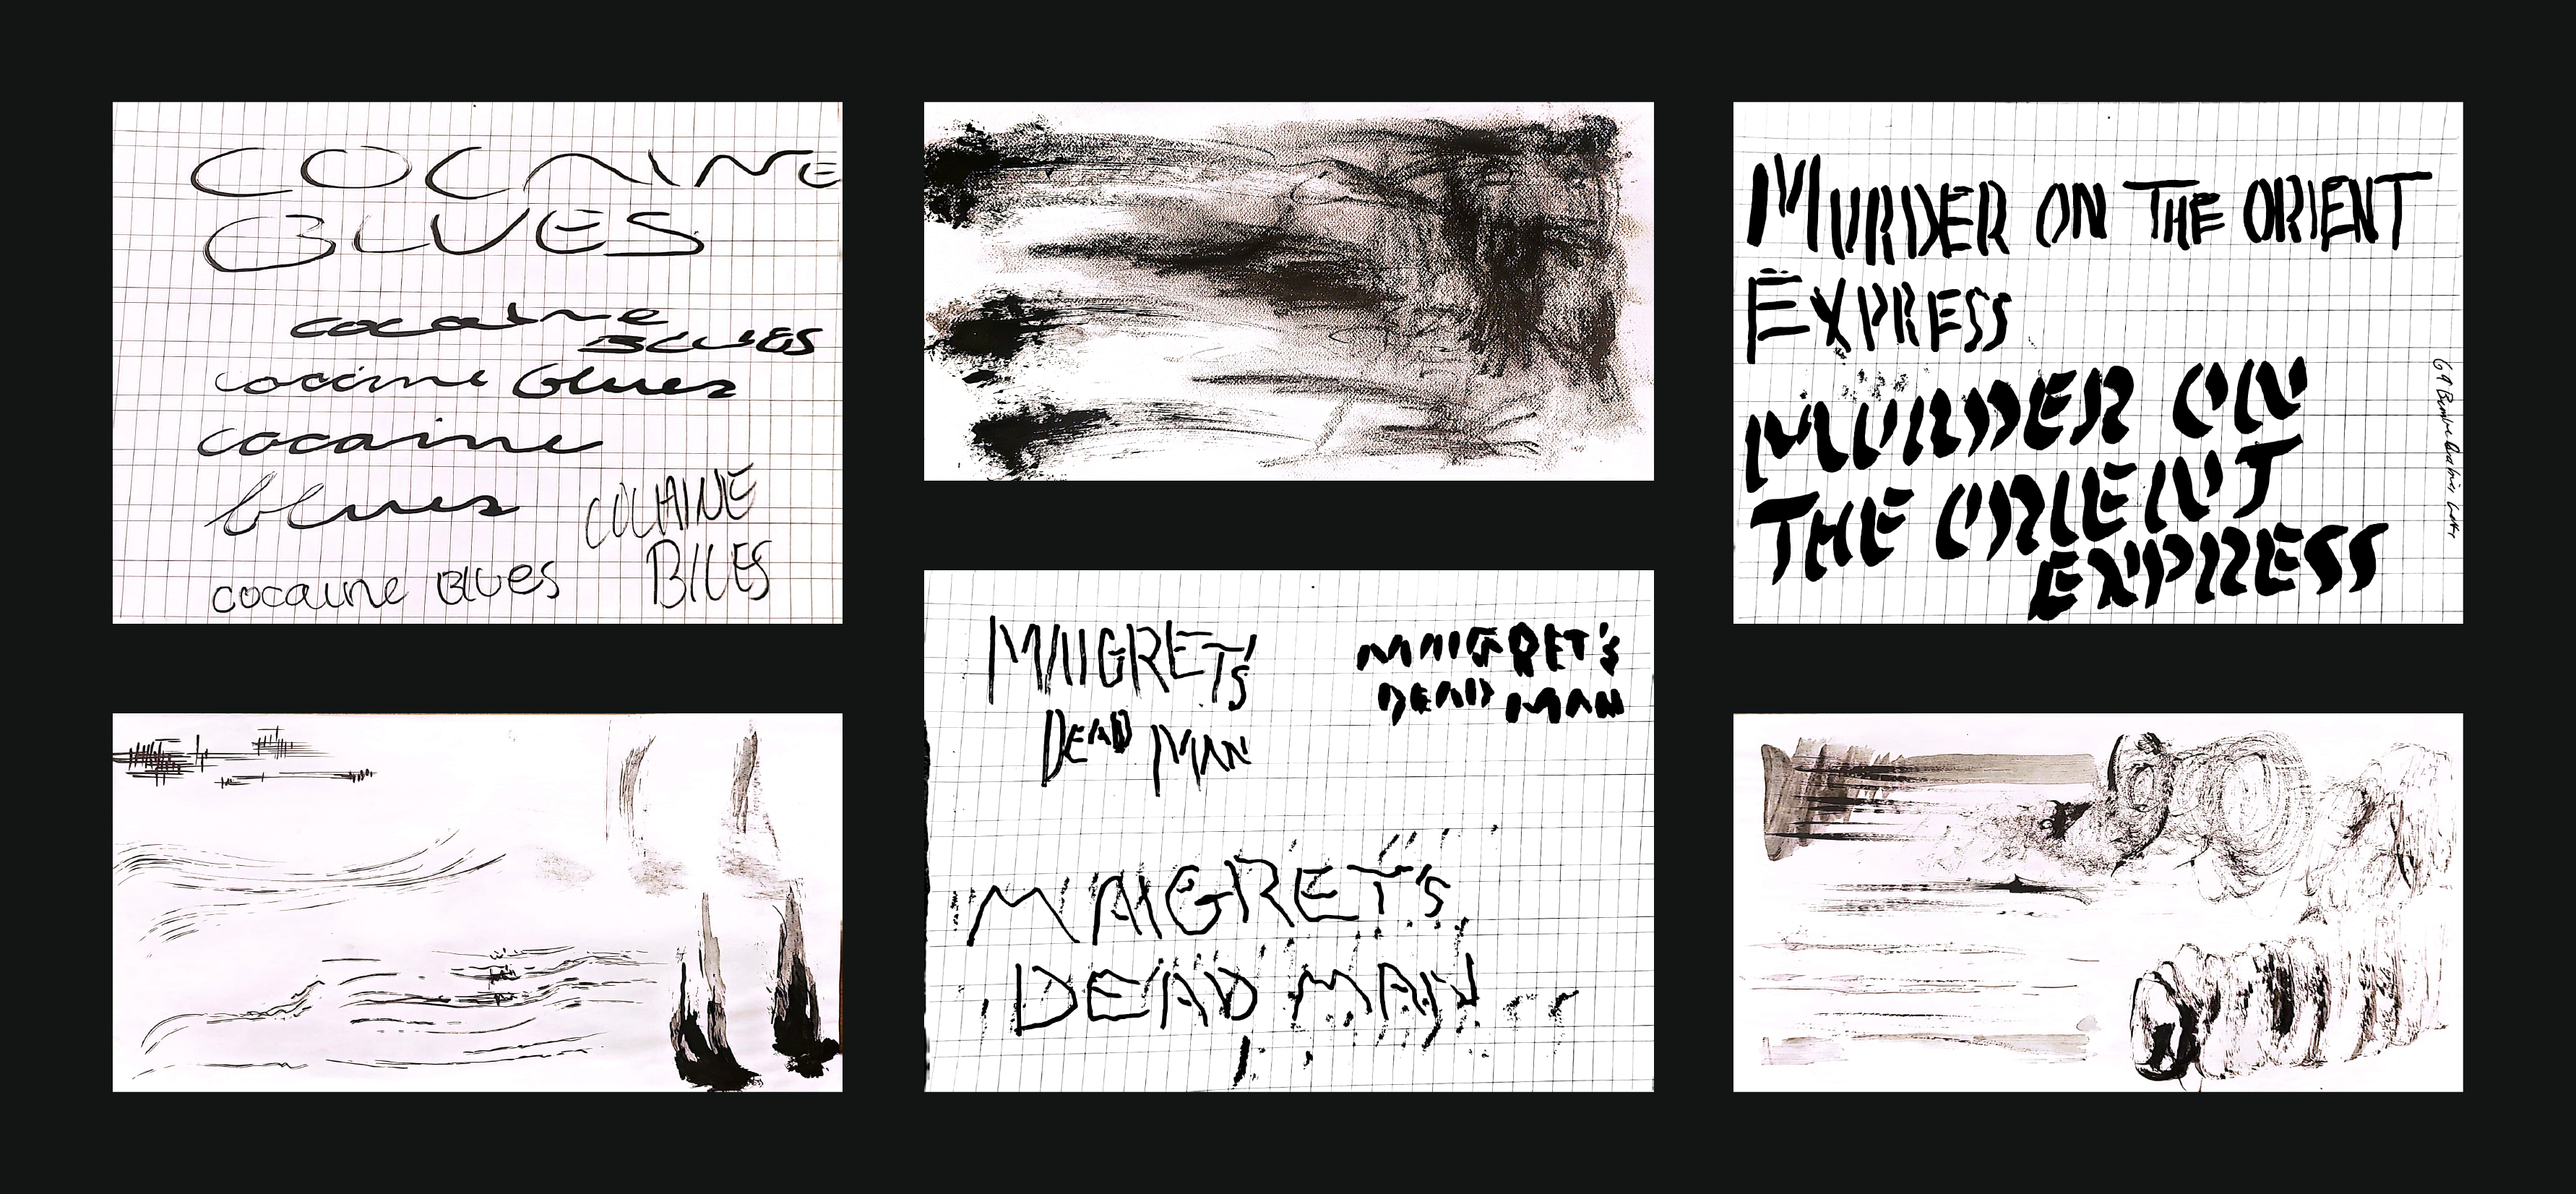 COCAINE
BLUES
cocaine
BLUES
cocaine blues
cocaine
blues
COCAINE
BLUES
cocaine BLues
MAIGRET's
DEAD MAN
MAIGRET'S
DEAD MAN
MAIGRET'S
DEAD MAN
MURDER ON THE ORIENT
EXPRESS
MURDER ON
THE ORIENT
EXPRESS